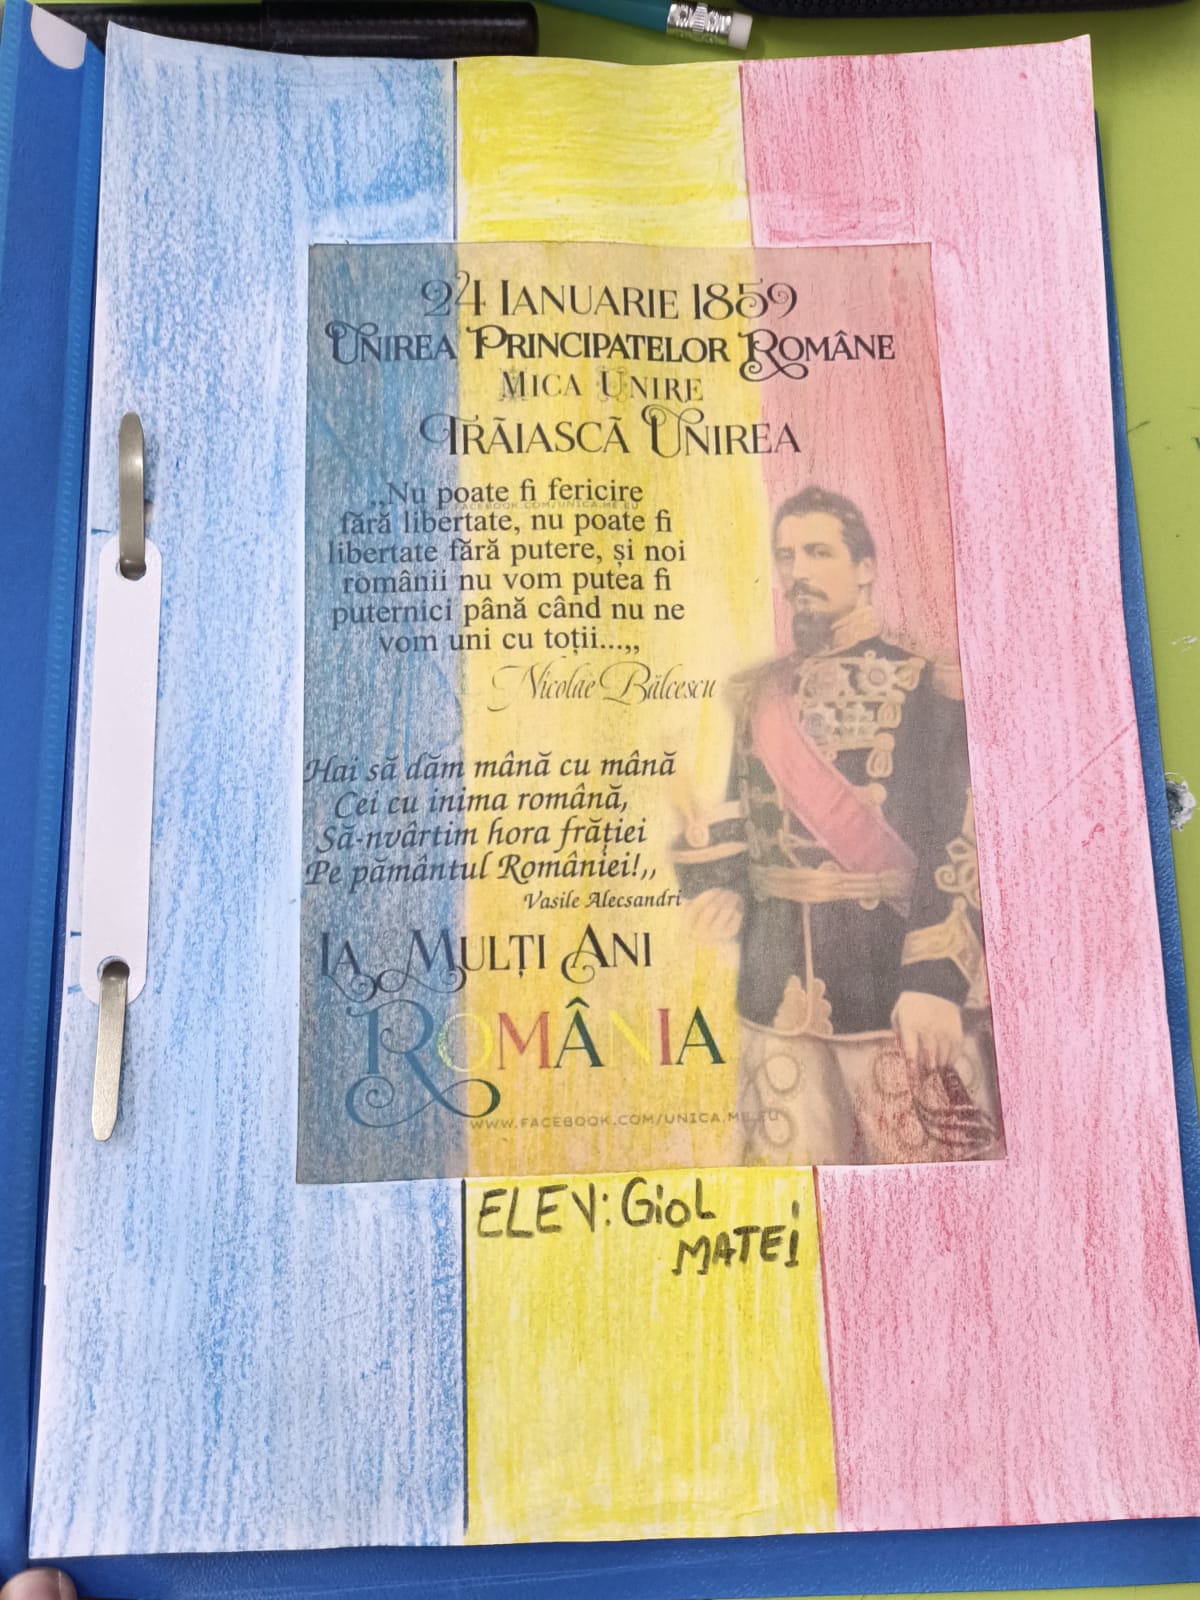 24 IANUARIE 1859
UNIREA PRINCIPATELOR ROMÂNE
MICA UNIRE
TRĂIASCĂ UNIREA
,,Nu poate fi fericire
FACEBOOK.COM/UNICA.ME.EU
fără libertate, nu poate fi
libertate fără putere, și noi
românii nu vom putea fi
puternici până când nu ne
vom uni cu toții...,,
Nicolae Bălcescu
Hai să dăm mână cu mână
Cei cu inima română,
Să-nvârtim hora frăției
Pe pământul României!,,
Vasile Alecsandri
LA MULȚI ANI
ROMÂNIA
WWW.FACEBOOK.COM/UNICA.ME.EU
ELEV: GioL
MATEi